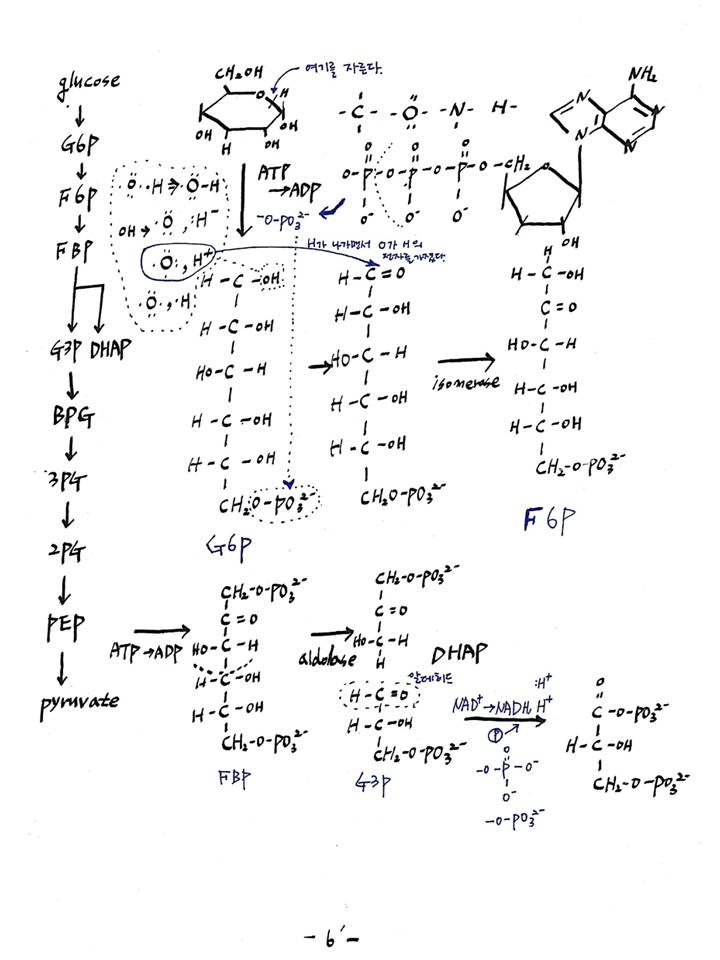 glucose
G6P
F6P
FBP
G3P DHAP
BPG
3PG
2PG
PEP
pyruvate
CH₂OH
여기를 자른다.
O H
OH H OH OH
ATP
→ADP
-O-PO₃²⁻
-C- -O- -N- H-
O O O
-O-P-O-P-O-P-O-CH₂
O⁻ O⁻ O⁻
NH₂
N N
N N
O
OH
O··H ⇒ O-H
OH→ O, :H⁻
O:, H⁺
O·, ·H
H가 나가면서 O가 H의
전자를 가져온다.
H-C-OH
H-C-OH
HO-C-H
H-C-OH
H-C-OH
CH₂O-PO₃²⁻
G6P
H-C=O
H-C-OH
HO-C-H
H-C-OH
H-C-OH
CH₂O-PO₃²⁻
isomerase
H
H-C-OH
C=O
HO-C-H
H-C-OH
H-C-OH
CH₂-O-PO₃²⁻
F6P
ATP→ADP
CH₂-O-PO₃²⁻
C=O
HO-C-H
H-C-OH
H-C-OH
CH₂-O-PO₃²⁻
FBP
aldolase
CH₂-O-PO₃²⁻
C=O
HO-C-H
H
DHAP
알데히드
H-C=O
H-C-OH
CH₂-O-PO₃²⁻
G3P
:H⁺
NAD⁺→NADH, H⁺
Ⓟ
-O-P-O⁻
O⁻
-O-PO₃²⁻
O
C-O-PO₃²⁻
H-C-OH
CH₂-O-PO₃²⁻
- 6′ -